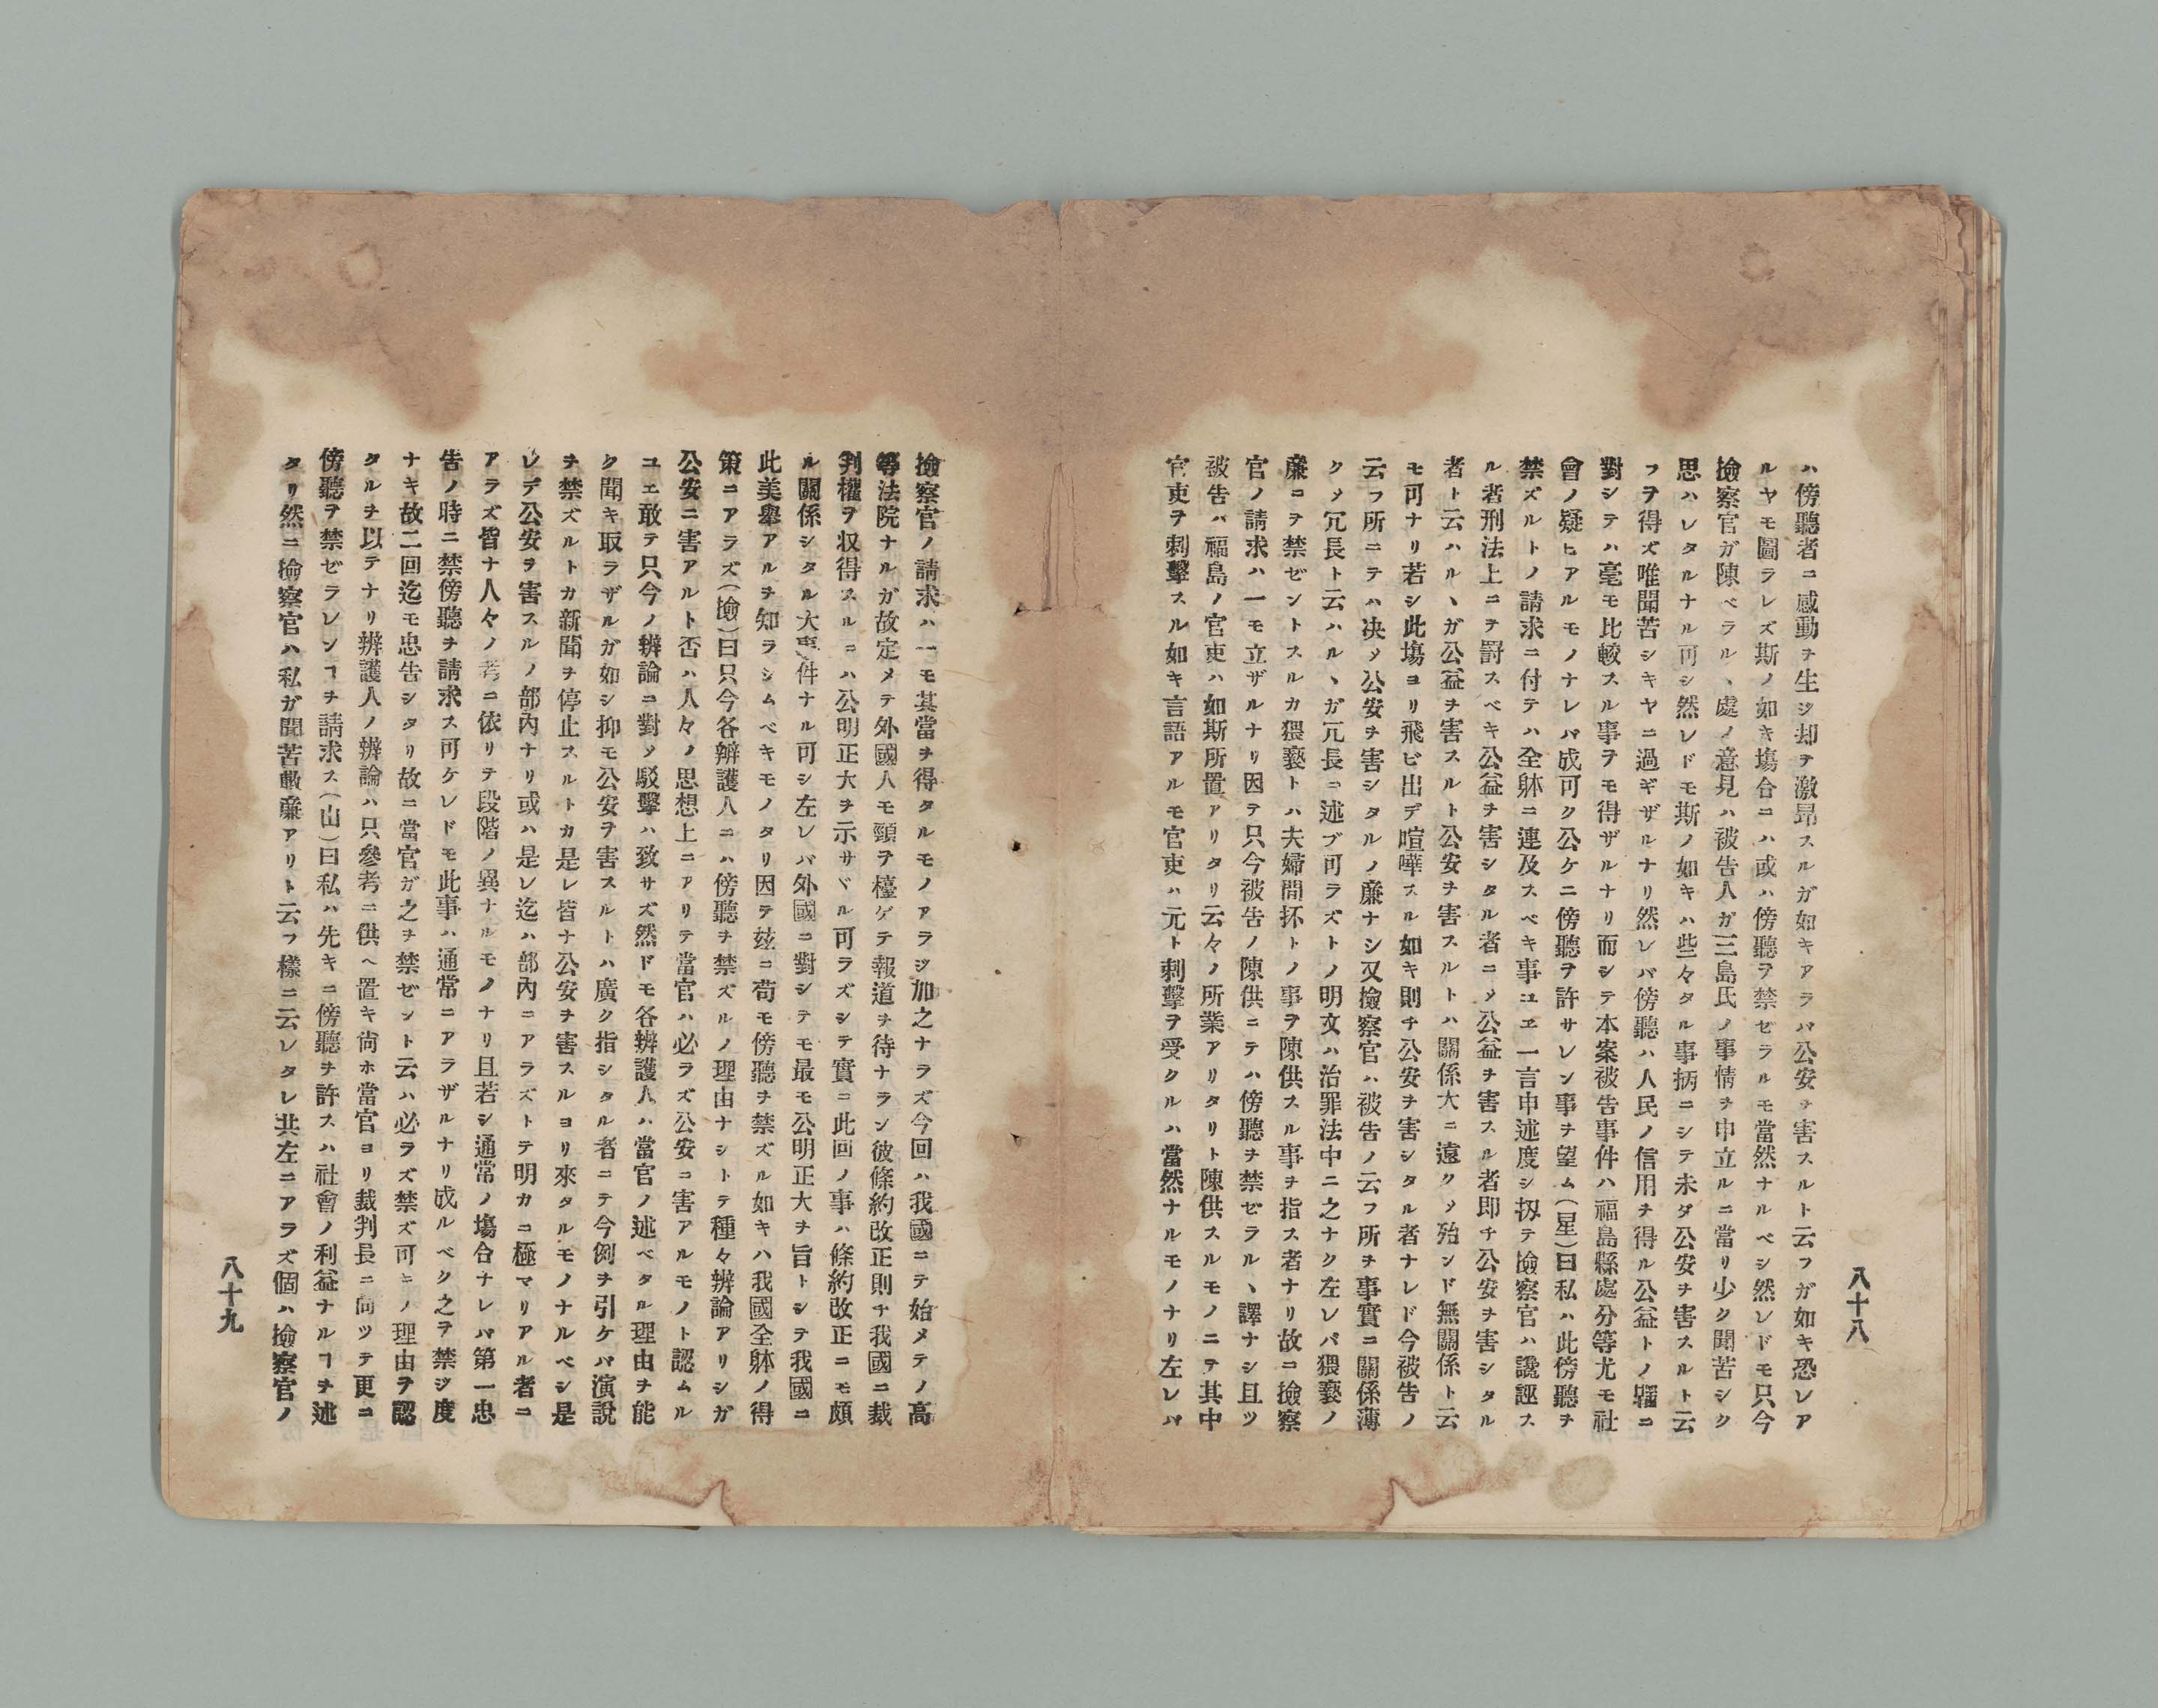 八十八
ハ傍聽者ニ感動ヲ生ジ却テ激昂スルガ如キアラバ公安ヲ害スルト云フガ如キ恐レア
ルヤモ圖ラレズ斯ノ如キ塲合ニハ或ハ傍聽ヲ禁ゼラルモ當然ナルベシ然レドモ只今
撿察官ガ陳ベラルヽ處ノ意見ハ被告人ガ三島氏ノ事情ヲ申立ルニ當リ少ク聞苦シク
思ハレタルナル可シ然レドモ斯ノ如キハ些々タル事抦ニシテ未ダ公安ヲ害スルト云
フヲ得ズ唯聞苦シキヤニ過ギザルナリ然レバ傍聽ハ人民ノ信用ヲ得ル公益トノ 二
對シテハ毫モ比較スル事ヲモ得ザルナリ而シテ本案被告事件ハ福島縣處分等尤モ社
會ノ疑ヒアルモノナレバ成可ク公ケニ傍聽ヲ許サレン事ヲ望ム(星)曰私ハ此傍聽ヲ
禁ズルトノ請求ニ付テハ全躰ニ連及スベキ事ユヱ一言申述度シ扨テ撿察官ハ讒誣ス
ル者刑法上ニヲ罸スベキ公益ヲ害シタル者ニメ公益ヲ害スル者即チ公安ヲ害シタル
者ト云ハルヽガ公益ヲ害スルト公安ヲ害スルトハ關係大ニ遠クメ殆ンド無關係ト云
モ可ナリ若シ此塲ヨリ飛ビ出デ喧嘩スル如キ則チ公安ヲ害シタル者ナレド今被告ノ
云フ所ニテハ决メ公安ヲ害シタルノ廉ナシ又撿察官ハ被告ノ云フ所ヲ事實ニ關係薄
クメ冗長ト云ハルヽガ冗長ニ述ブ可ラズトノ明文ハ治罪法中ニ之ナク左レバ猥褻ノ
廉ヿヲ禁ゼントスルカ猥褻トハ夫婦間抔トノ事ヲ陳供スル事ヲ指ス者ナリ故ニ撿察
官ノ請求ハ一モ立ザルナリ因テ只今被告ノ陳供ニテハ傍聽ヲ禁ゼラルヽ譯ナシ且ツ
被告ハ福島ノ官吏ハ如斯所置アリタリ云々ノ所業アリタリト陳供スルモノニテ其中
官吏ヲ刺擊スル如キ言語アルモ官吏ハ元ト刺擊ヲ受クルハ當然ナルモノナリ左レバ
撿察官ノ請求ハ一モ其當ヲ得タルモノアラジ加之ナラズ今回ハ我國ニテ始メテノ高
等法院ナルガ故定メテ外國人モ頸ヲ檯ゲテ報道ヲ待ナラン彼條約改正則チ我國ニ裁
判權ヲ収得スルニハ公明正大ヲ示サヾル可ラズシテ實ニ此回ノ事ハ條約改正ニモ頗
ル關係シタル大事件ナル可シ左レバ外國ニ對シテモ最モ公明正大ヲ旨トシテ我國ニ
此美擧アルヲ知ラシムベキモノタリ因テ玆ニ苟モ傍聽ヲ禁ズル如キハ我國全躰ノ得
策ニアラズ(撿)曰只今各辨護人ニハ傍聽ヲ禁ズルノ理由ナシトテ種々辨論アリシガ
公安ニ害アルト否ハ人々ノ思想上ニアリテ當官ハ必ラズ公安ニ害アルモノト認ムル
ユヱ敢テ只今ノ辨論ニ對メ駁擊ハ致サズ然ドモ各辨護人ハ當官ノ述ベタル理由ヲ能
ク聞キ取ラザルガ如シ抑モ公安ヲ害スルトハ廣ク指シタル者ニテ今例ヲ引ケバ演說
ヲ禁ズルトカ新聞ヲ停止スルトカ是レ皆ナ公安ヲ害スルヨリ來タルモノナルベシ是
レデ公安ヲ害スルノ部內ナリ或ハ是レ迄ハ部內ニアラズトテ明カニ極マリアル者ニ
アラズ皆ナ人々ノ考ニ依リテ段階ノ異ナルモノナリ且若シ通常ノ塲合ナレバ第一忠
告ノ時ニ禁傍聽ヲ請求ス可ケレドモ此事ハ通常ニアラザルナリ成ルベク之ヲ禁ジ度
ナキ故二回迄モ忠告シタリ故ニ當官ガ之ヲ禁ゼント云ハ必ラズ禁ズ可キノ理由ヲ認
タルヲ以テナリ辨護人ノ辨論ハ只參考ニ供ヘ置キ尙ホ當官ヨリ裁判長ニ向ツテ更ニ
傍聽ヲ禁ゼラレンヿヲ請求ス(山)曰私ハ先キニ傍聽ヲ許スハ社會ノ利益ナルヿヲ述
タリ然ニ撿察官ハ私ガ聞苦敷廉アリト云フ樣ニ云レタレ共左ニアラズ個ハ撿察官ノ
八十九